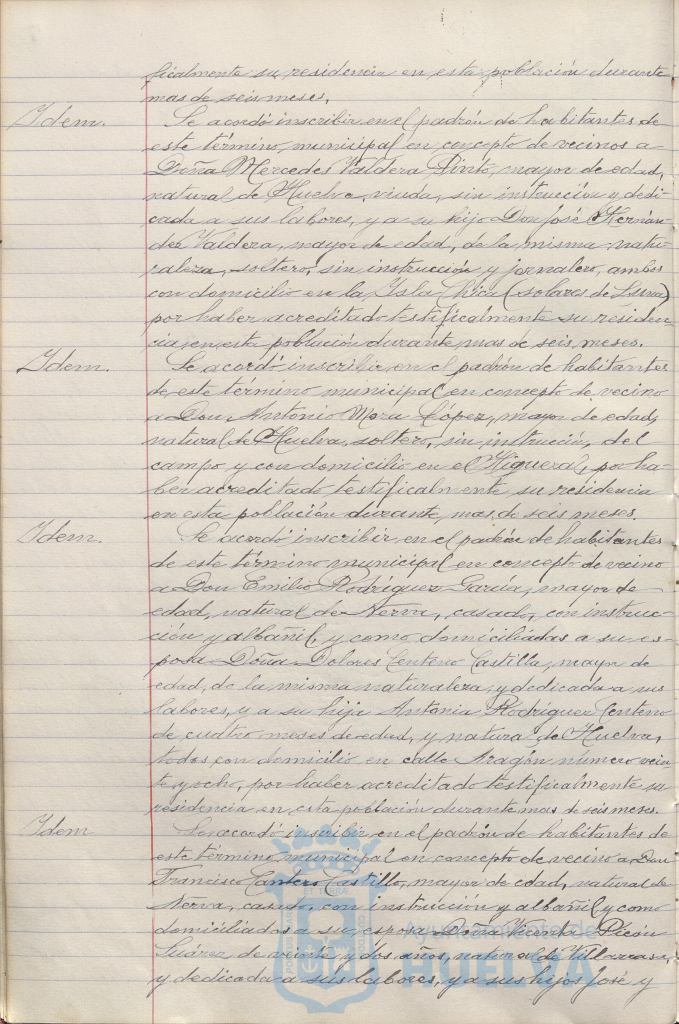 ficalmente su residencia en esta población durante
mas de seis meses.
Idem.
Se acordó inscribir en el padrón de habitantes de
este término municipal en concepto de vecinos a
Doña Mercedes Valdera Pinto, mayor de edad,
natural de Huelva, viuda, sin instrucción y dedi-
cada a sus labores, y a su hijo Don José Hernán-
dez Valdera, mayor de edad, de la misma natu-
raleza, soltero, sin instrucción y jornalero, ambos
con domicilio en la Isla Chica (solares de Luna)
por haber acreditado testificalmente su residen-
cia en esta población durante mas de seis meses.
Idem.
Se acordó inscribir en el padrón de habitantes
de este término municipal en concepto de vecino
a Don Antonio Mora López, mayor de edad,
natural de Huelva, soltero, sin instrucción, del
campo y con domicilio en el Higueral, por ha-
ber acreditado testificalmente su residencia
en esta población durante mas de seis meses.
Idem.
Se acordó inscribir en el padrón de habitantes
de este término municipal en concepto de vecino
a Don Emilio Rodríguez García, mayor de
edad, natural de Nerva, casado, con instruc-
ción y albañil, y como domiciliadas a su es-
posa Doña Dolores Centeno Castilla, mayor de
edad, de la misma naturaleza, y dedicada a sus
labores, y a su hija Antonia Rodríguez Centeno
de cuatro meses de edad, y natural de Huelva,
todos con domicilio en calle Aragón número vein-
te y ocho, por haber acreditado testificalmente su
residencia en esta población durante mas de seis meses.
Idem
Se acordó inscribir en el padrón de habitantes de
este término municipal en concepto de vecino a Don
Francisco Cantero Castillo, mayor de edad, natural de
Nerva, casado, con instrucción y albañil y como
domiciliados a su esposa Doña Vicenta Picón
Suárez de veinte y dos años, natural de Villarrasa,
y dedicada a sus labores, y a sus hijos José y
Ayuntamiento de
HUELVA